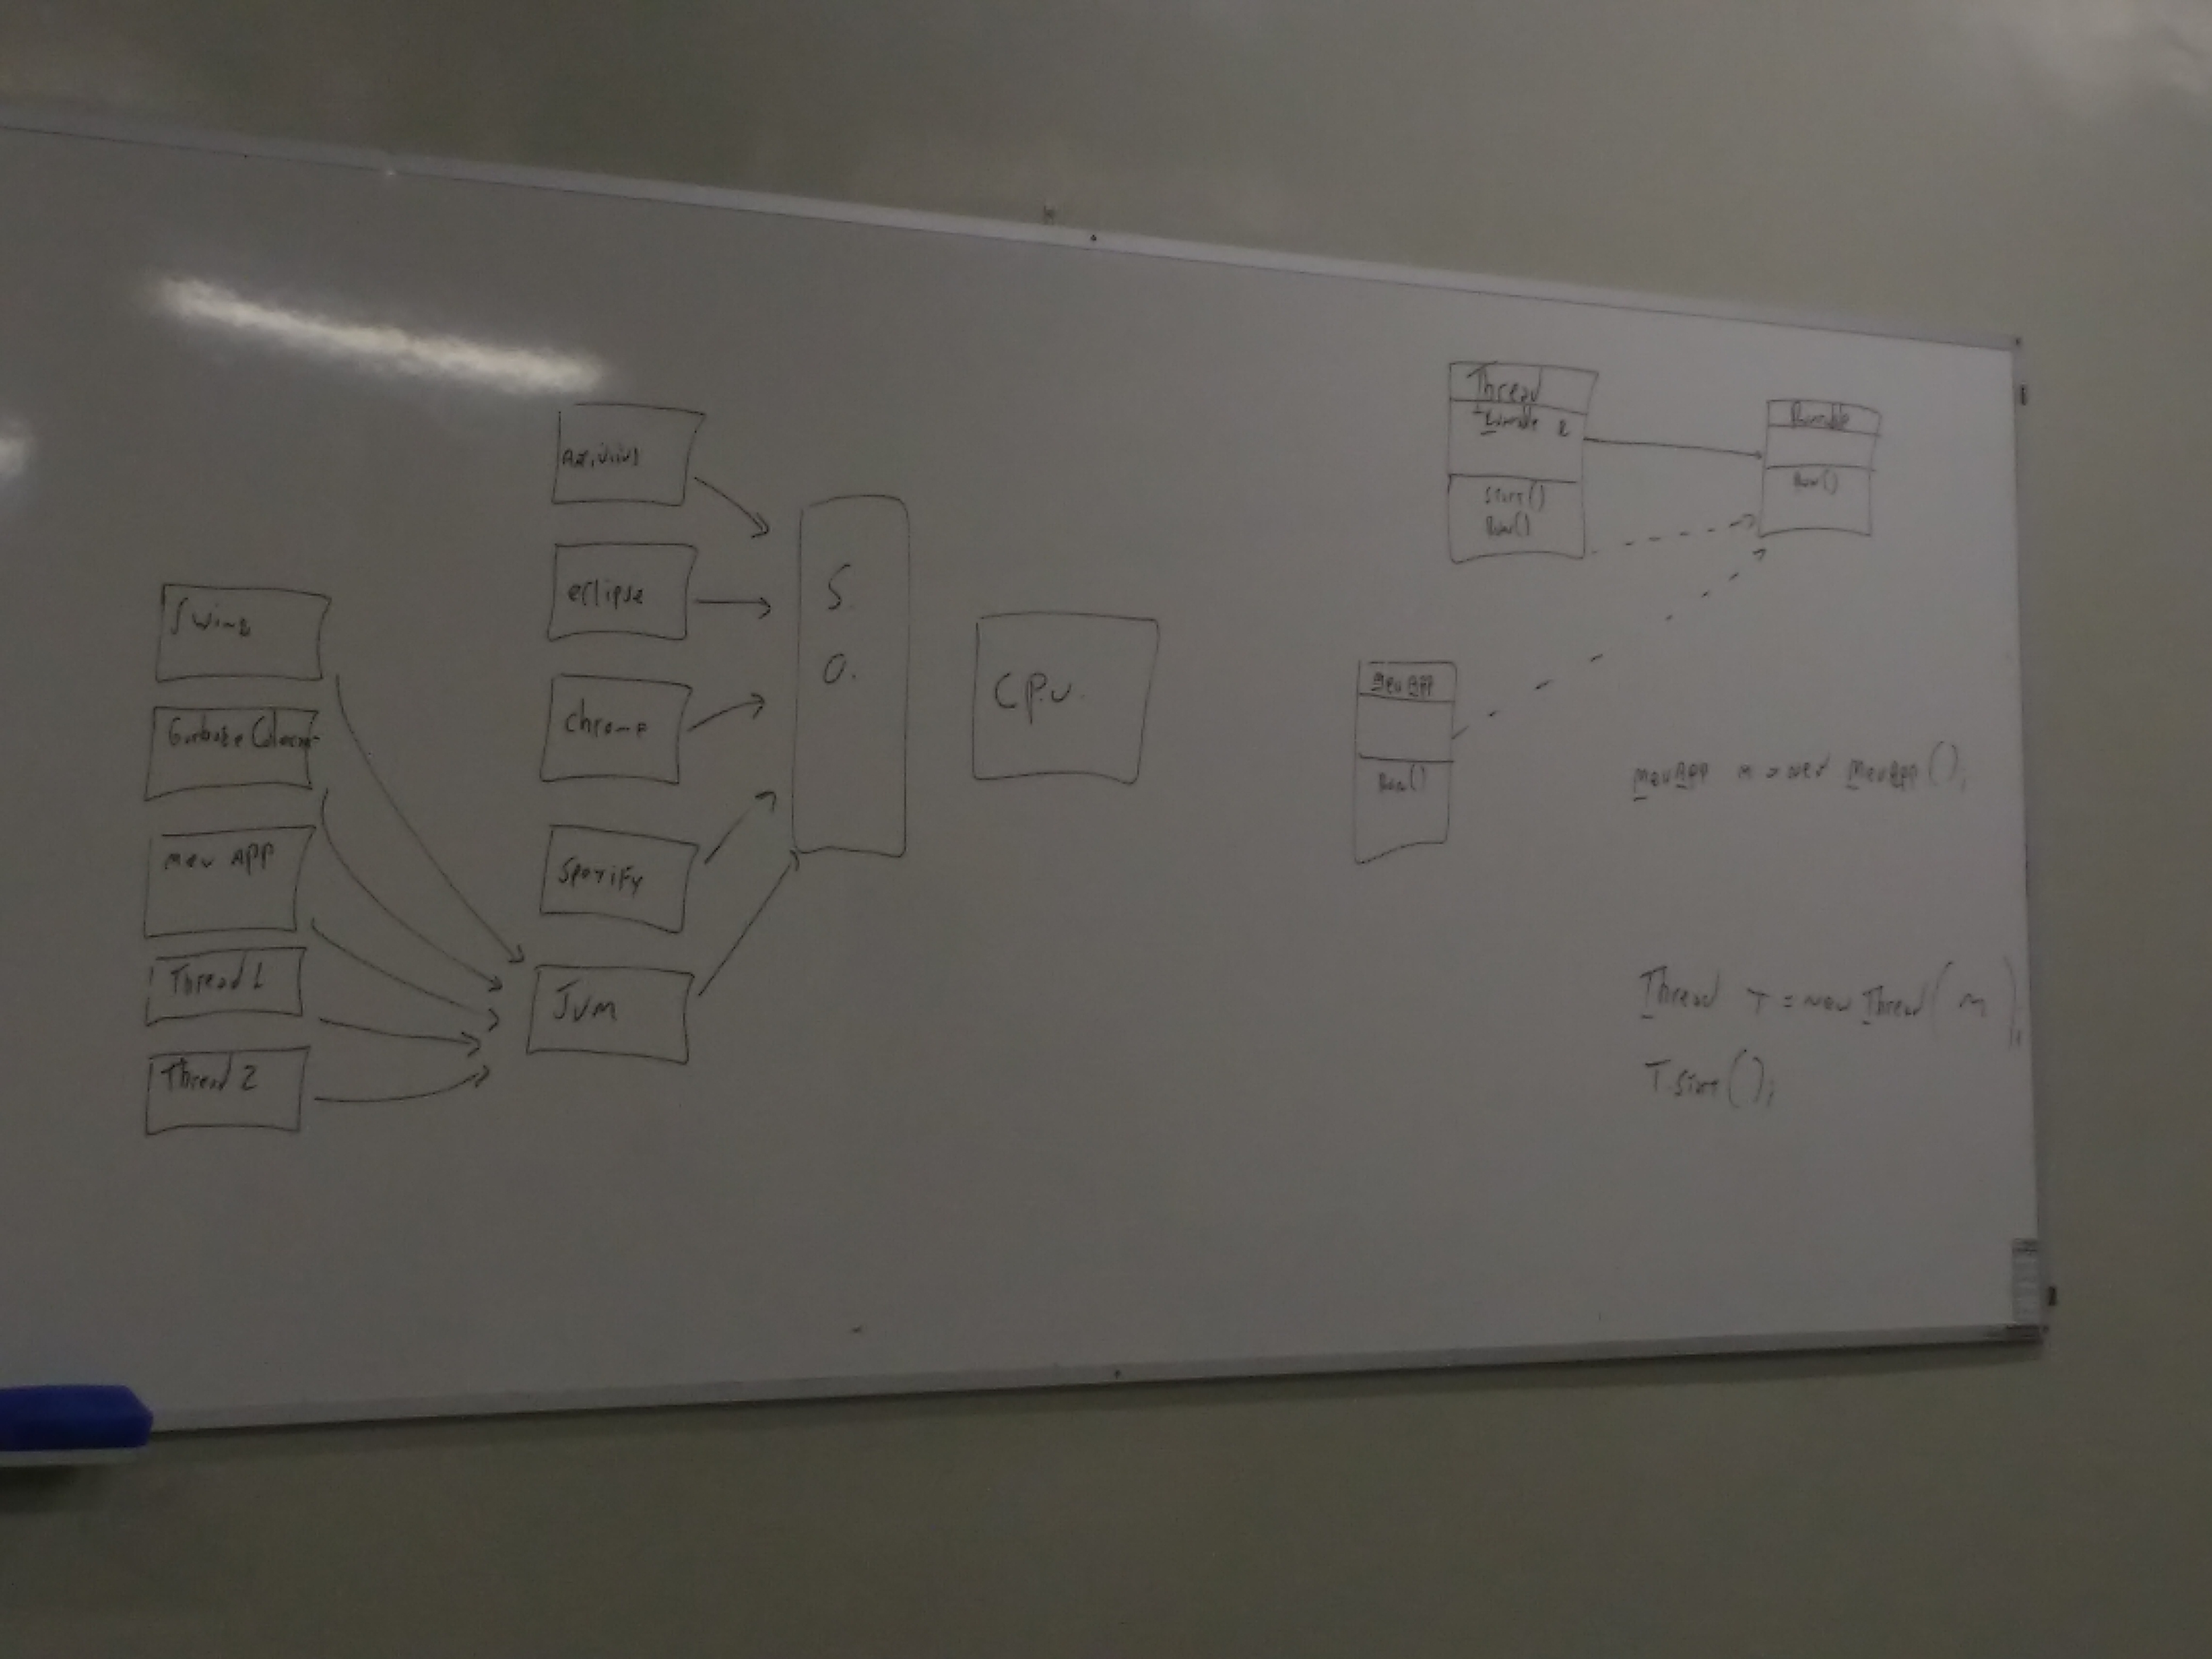 Swing
Garbage Colector
meu APP
Thread 1
Thread 2
eclipse
chrome
Spotify
JVM
S.
O.
CPU.
Thread
Runnable R
Start()
Run()
Runnable
Run()
MeuApp
Run()
MeuApp m = new MeuApp();
Thread T = new Thread( m );
T.start();